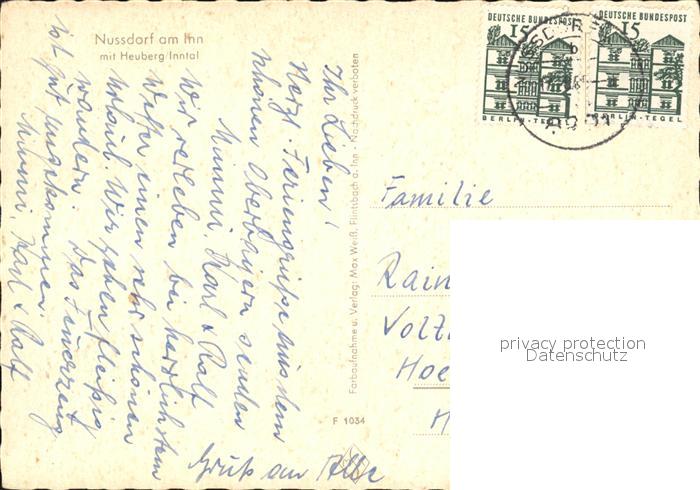 Nussdorf am Inn
mit Heuberg/Inntal
Ihr Lieben!
Herzl. Feriengrüße aus dem
schönen Oberbayern senden
Mimmi, Karl & Ralf
Wir verleben bei herrlichstem
Wetter einen sehr schönen
Urlaub. Wir gehen fleißig
wandern. Das Feuerzeug
ist gut angekommen.
Mimmi Karl & Ralf
Gruß an Alle
Farbaufnahme u. Verlag: Max Weiß, Flintsbach a. Inn - Nachdruck verboten
F 1034
DEUTSCHE BUNDESPOST
15
BERLIN-TEGEL
DEUTSCHE BUNDESPOST
15
BERLIN-TEGEL
NUSSDORF
b
8201
Familie
Rain
Volt
Hoe
privacy protection
Datenschutz